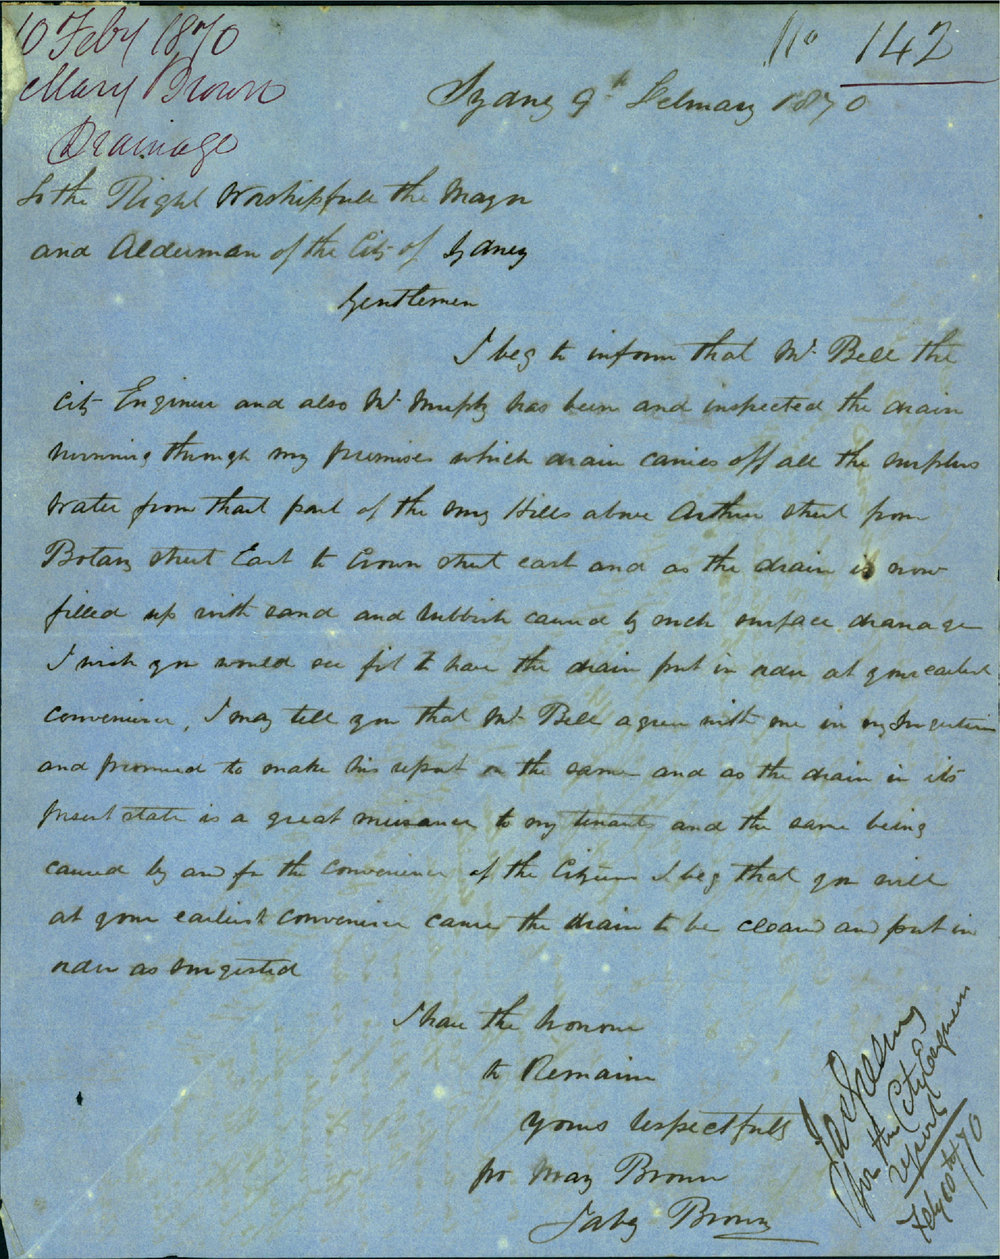 10 Feby 1870
Mary Brown
Drainage
No 142
Sydney 9th February 1870
To the Right Worshipfull the Mayor
and Alderman of the City of Sydney
Gentlemen
I beg to inform that Mr Bell the
City Engineer and also Mr Murphy has been and inspected the drain
running through my premises which drain carries off all the surplus
water from that part of the Surry Hills above Arthur street from
Botany street East to Crown street east and as the drain is now
filled up with sand and rubbish caused by such surface dranage
I wish you would see fit to have the drain put in order at your earliest
convenience, I may tell you that Mr Bell agrees with me in my Sugestions
and promised to make his report on the same and as the drain in its
present state is a great nuisance to my tenants and the same being
caused by and for the convenience of the Citizens I beg that you will
at your earliest convenience cause the drain to be cleared and put in
order as sugested
I have the honour
to Remain
Yours respectfully
pro Mary Brown
Brown
for the City Engineers
report
Feby 10th 70